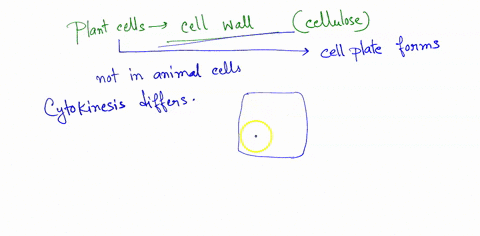 Plant cells → cell wall (cellulose)
→ cell plate forms
not in animal cells
Cytokinesis differs.